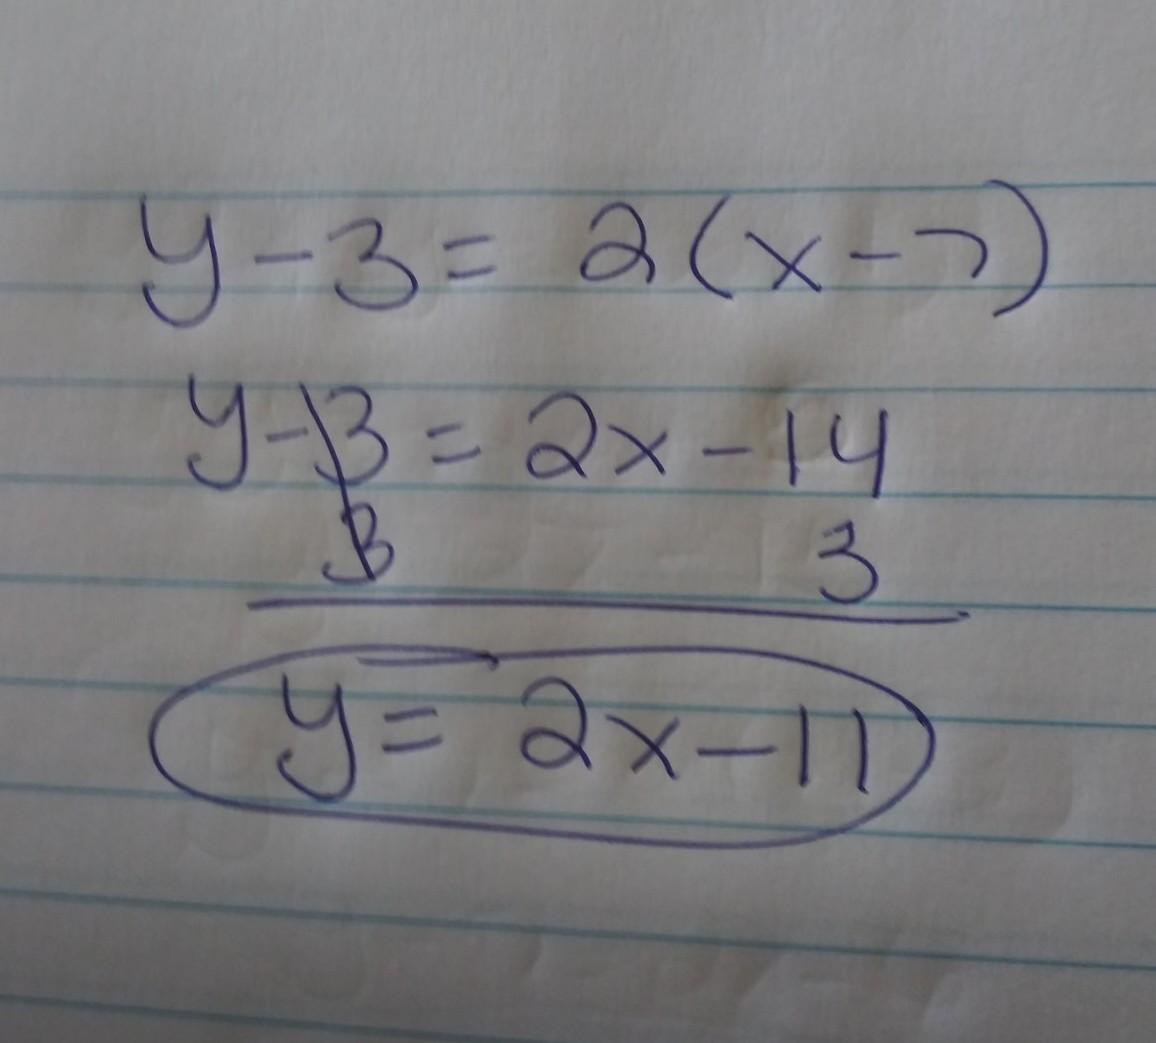 y - 3 = 2(x - 7)
y - 3 = 2x - 14
3 3
y = 2x - 11